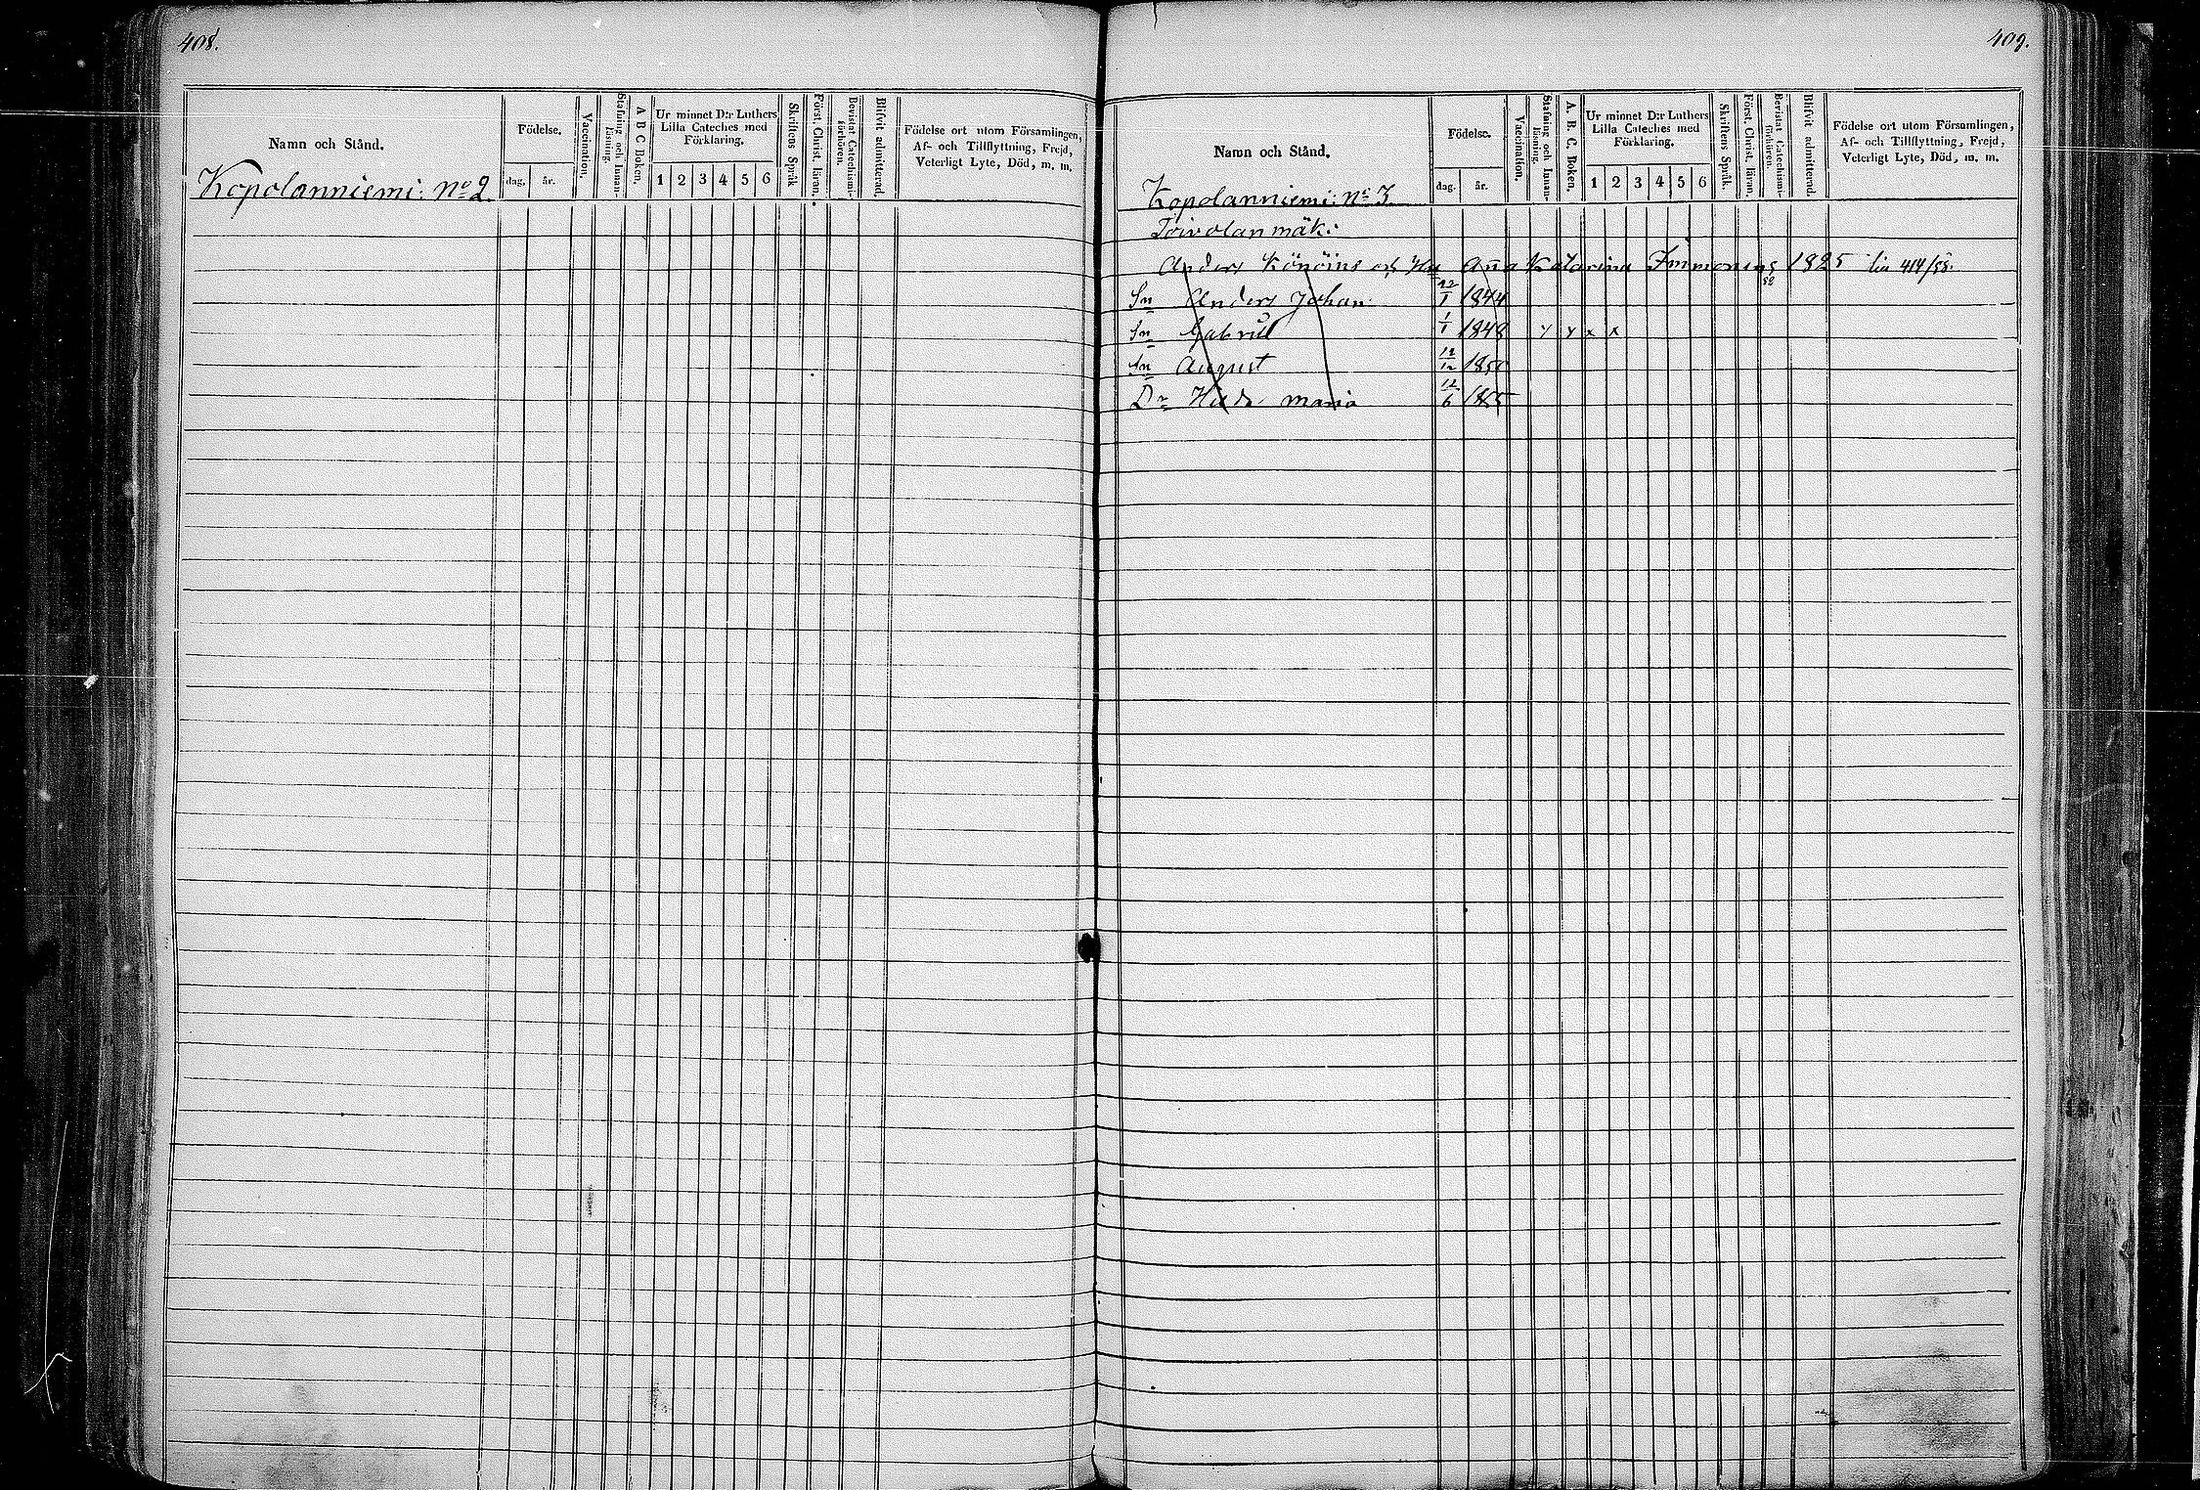 408.
Namn och Stånd.
Födelse.
dag.
år.
Vaccination.
Stafning och Innan-
läsning.
A B C Boken.
Ur minnet D:r Luthers
Lilla Cateches med
Förklaring.
1 2 3 4 5 6
Skriftens Språk
Först. Christ. läran.
Bevistat Catechismi-
förhören.
Blifvit admitterad.
Födelse ort utom Församlingen,
Af- och Tillflyttning, Frejd,
Veterligt Lyte, Död, m. m.
Kopolanniemi: No 2.
409.
Namn och Stånd.
Födelse.
dag.
år.
Vaccination.
Stafning och Innan-
läsning.
A. B. C. Boken.
Ur minnet D:r Luthers
Lilla Cateches med
Förklaring.
1 2 3 4 5 6
Skriftens Språk.
Först. Christ. läran.
Bevistat Catechismi-
förhören.
Blifvit admitterad.
Födelse ort utom Församlingen,
Af- och Tillflyttning, Frejd,
Veterligt Lyte, Död, m. m.
Kopolanniemi: No 3
Toivolanmäki
Anders Könöins och Hu Anna Katarina Immonens 1825 414/58.
Sn Anders Johan 1844
Sn Gabriel 1/1 1848 x x x x
Sn August 1850
Dr Hilda Maria 12/6 1855